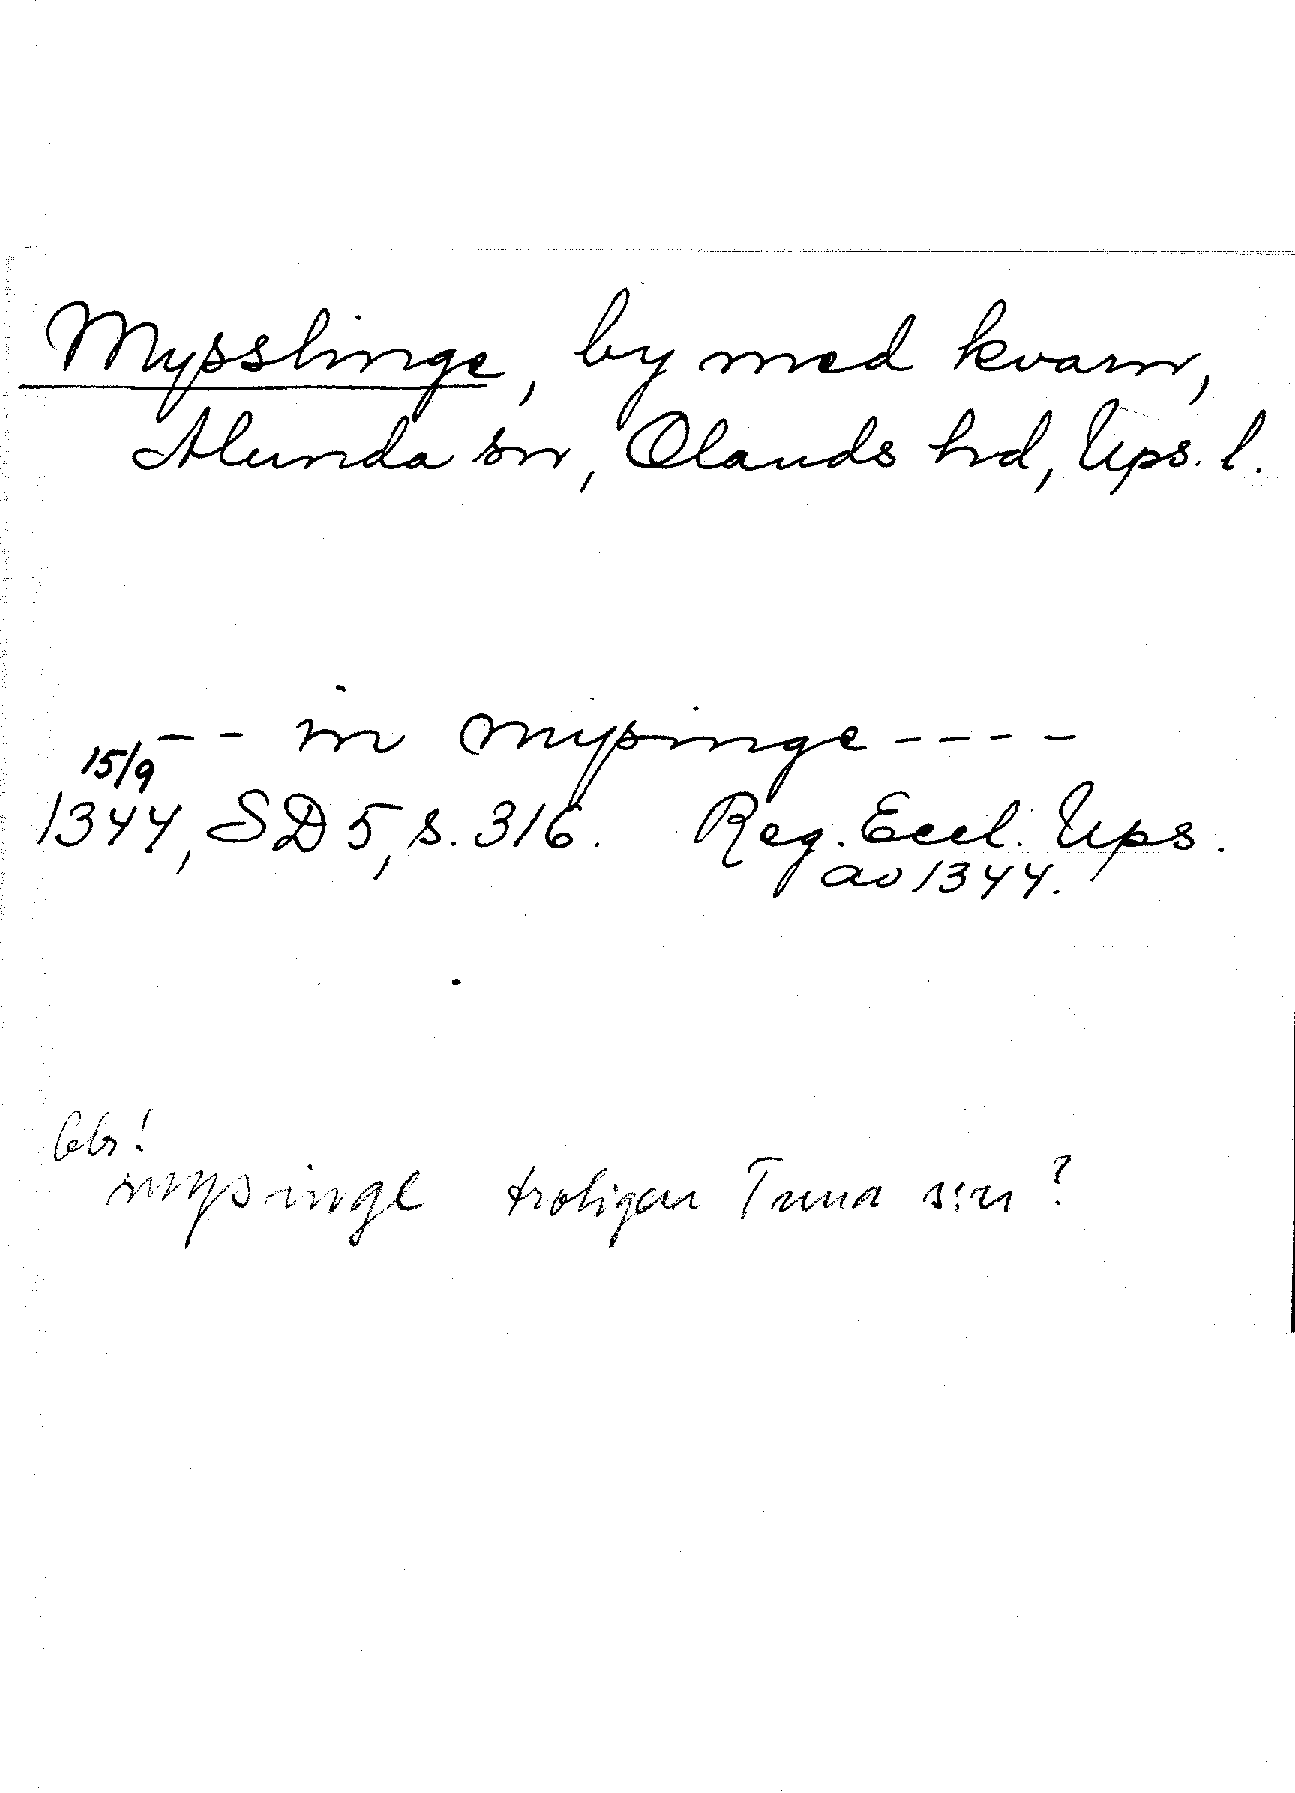 Mysslinge, by med kvarn,
Alunda sn, Olands hd, Ups. l.
-- in mypinge ----
15/9
1344, SD 5, s. 316. Reg. Eccl. Ups.
av 1344.
Obs!
mypinge troligen Tuna s:n?